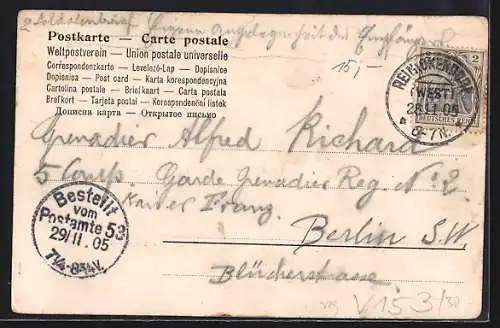 Soldatenbrief Eigene Angelegenheit des Empfängers
Postkarte — Carte postale
Weltpostverein — Union postale universelle
Correspondenzkarte — Levelező-Lap — Dopisnice
Dopisnica — Post card — Karta korespondencyjna
Cartolina postale — Briefkaart — Carta postala
Brefkort — Tarjeta postal — Korespondenční lístek
Дописна карта — Открытое письмо
15,-
(WEST)
28.11.05
6-7N.
2
DEUTSCHES REICH
Grenadier Alfred Richard
5 Comp. Garde Grenadier Reg. No. 2.
Kaiser Franz.
Berlin S.W.
Blücherstrasse
Bestellt
vom
Postamte 53
29/11.05
7¼-8¾V.
V153/30